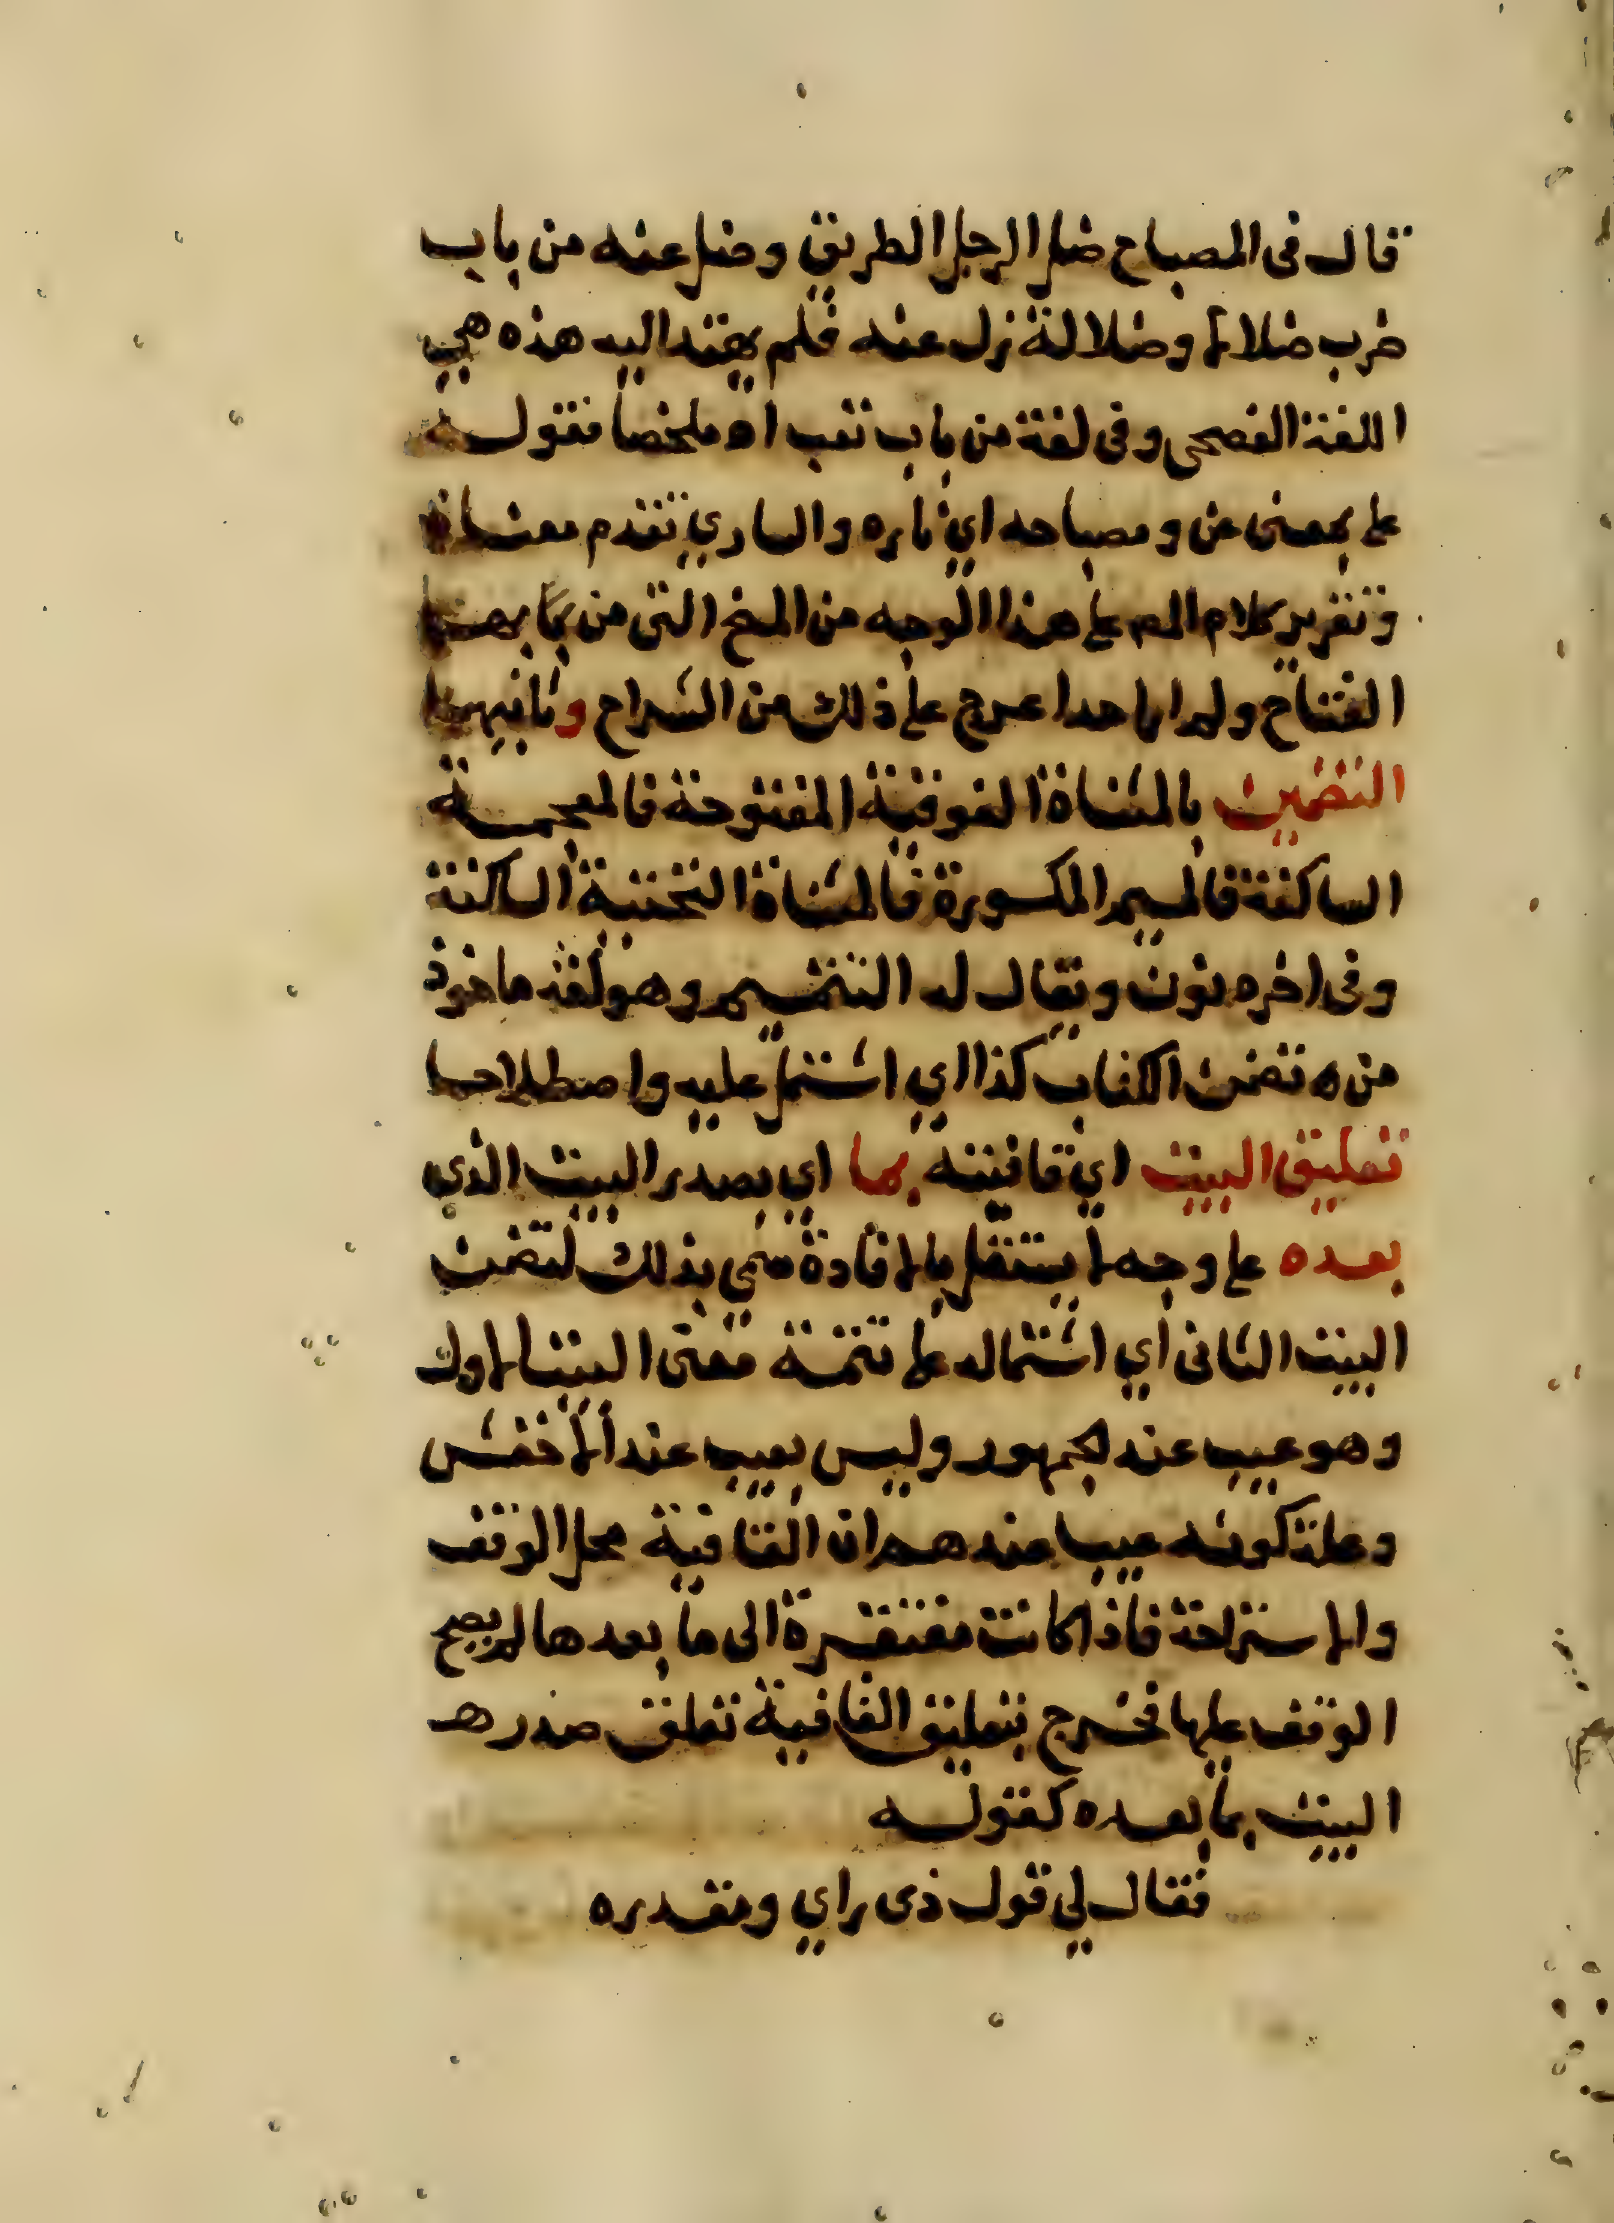 قال فى المصباح ضل الرجل الطريق وضل عنه من باب
ضرب ضلالا وضلالة زل عنه فلم يهتد اليه هذه هي
اللغة الفصحى وفى لغة من باب تعب اه ملخصا فقوله
على بمعنى عن ومصباحه اي نايره والساري تقدم معناه
وتقرير كلام المص على هذا الوجه من المنح التى من بها بعضها
الفتاح ولم ار احدا عرج على ذلك من الشراح وثانيهما
التضمين بالمثناة الفوقية المفتوحة فالمعجمة
الساكنة فالميم المكسورة فالمثناة التحتية الساكنة
وفى اخره نون ويقال له التتميم وهو لغة ماخوذ
من تضمن الكتاب كذا اي اشتمل عليه واصطلاحا
تعليق البيت اي قافيته بما اي بصدر البيت الذي
بعده على وجه لا يستقل بالافادة سمي بذلك لتضمن
البيت الثانى اي اشتماله على تتمة معنى البيت الاول
وهو عيب عند الجمهور وليس بعيب عند الاخفش
وعلة كونه عيبا عندهم ان القافية محل الوقف
والاستراحة فاذا كانت مفتقرة الى ما بعدها لم يصح
الوقف عليها فخرج بتعليق القافية تعلق صدر هـ
البيت بما بعده كقوله
فقال لي قول ذى راي ومقدره